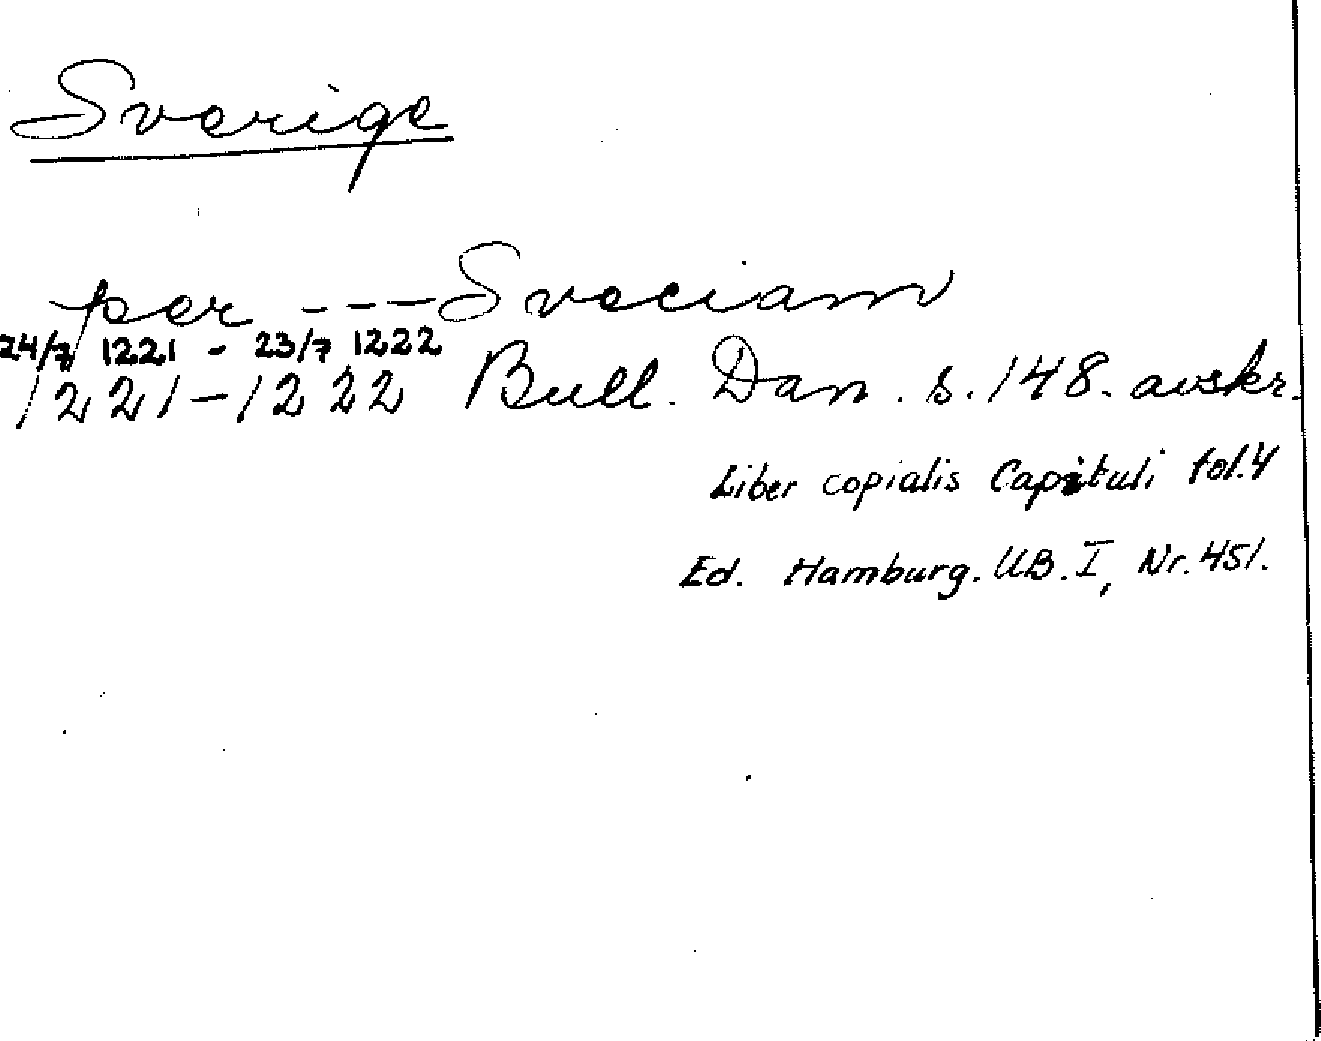 Sverige
per --- Sveciam
24/7 1221 - 23/7 1222
1221-1222 Bull. Dan. s. 148. avskr.
Liber copialis Capituli fol.4
Ed. Hamburg. UB. I, Nr. 451.